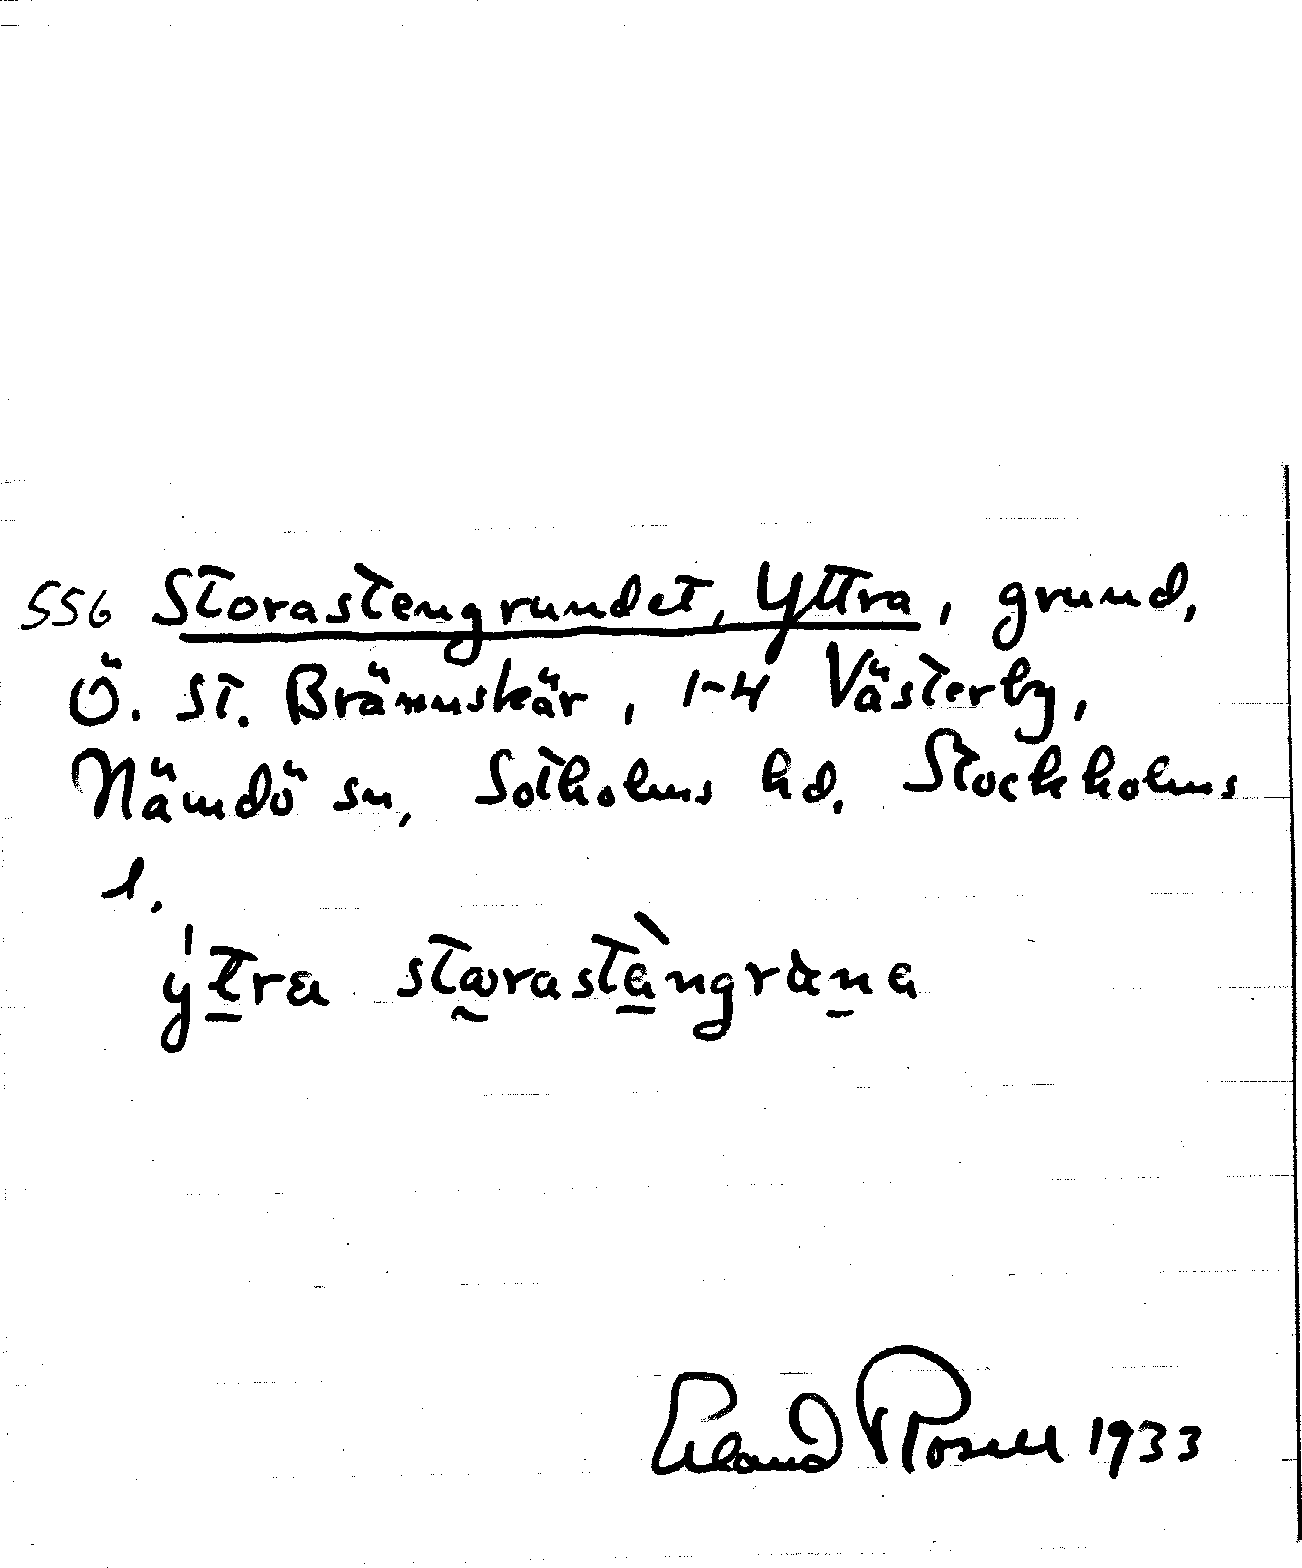 556 Storastengrundet, Yttra, grund,
Ö. St. Brännskär, 1-4 Västerby,
Nämdö sn, Sotholms hd. Stockholms
l.
ýtra stωrastὲngrùna
Erland Rosell 1933